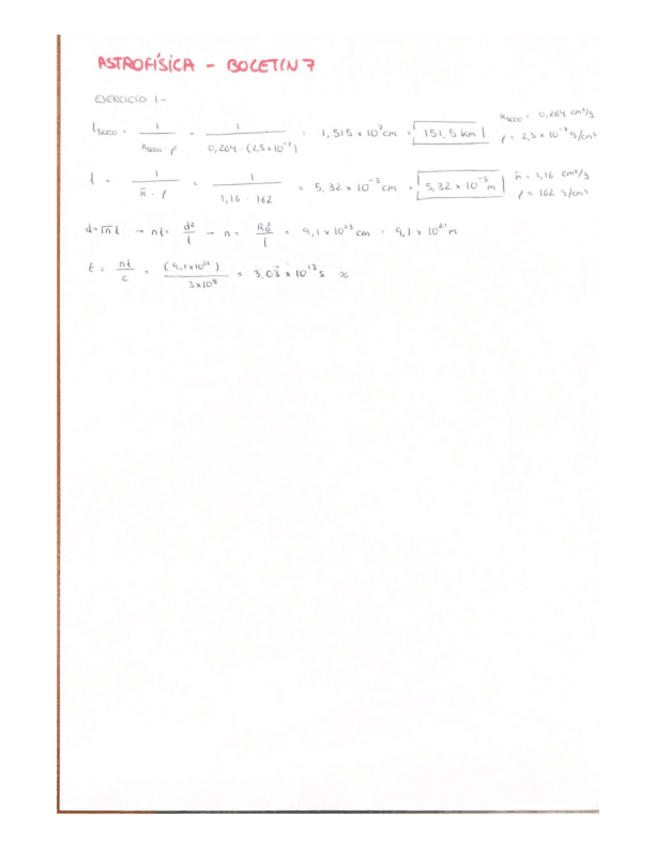 ASTROFÍSICA - BOLETIN 7
EJERCICIO 1-
l₅₀₀₀ = 1 / (K₅₀₀₀ · ρ) = 1 / (0,264 · (2,5 × 10⁻⁷)) = 1,515 × 10⁷ cm = 151,5 km K₅₀₀₀ = 0,264 cm²/g
ρ = 2,5 × 10⁻⁷ g/cm³
l = 1 / (κ̄ · ρ) = 1 / (1,16 · 162) = 5,32 × 10⁻³ cm = 5,32 × 10⁻⁵ m κ̄ = 1,16 cm²/g
ρ = 162 g/cm³
d = √n l → nl = d² / l → n = R₀² / l = 9,1 × 10²³ cm = 9,1 × 10²¹ m
t = nl / c = (9,1 × 10²¹) / 3×10⁸ = 3,03 × 10¹³ s